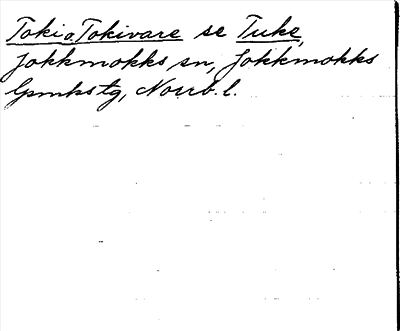 Toki o. Tokivare se Tuke,
Jokkmokks sn, Jokkmokks
lpmkstg, Norrb. l.